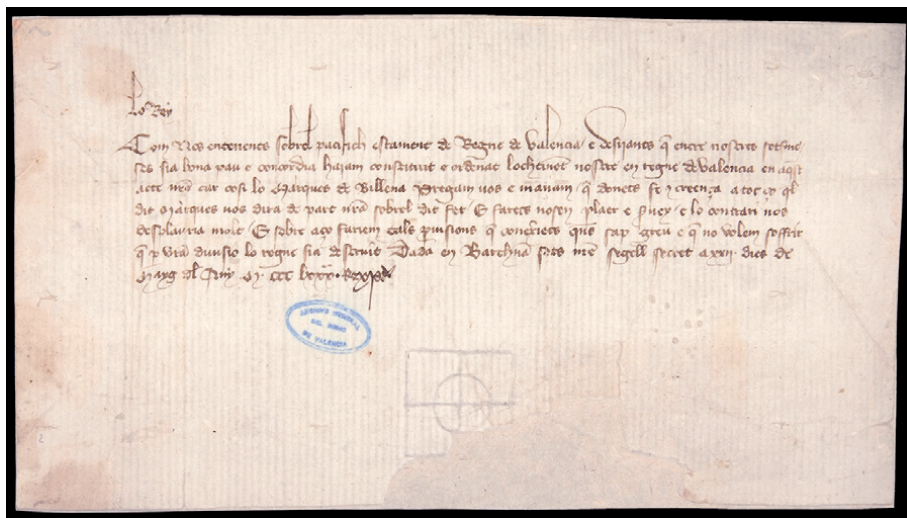 Lo Rey
Com Nos entenents sobrel pacifich estament de Regne de Valencia e desijants q entre nostres sotsme
ses sia bona pau e concordia hajam constituit e ordenat lochtinet nostre en regne d Valencia en aqst
acte nre car cosi lo Marques de Villena Pregam vos e manam q donets fe y creença a tot ço ql
dit Marques vos dira de part nra sobrel dit fet E farets nosen plaer e servey e lo contrari nos
desplauria molt E sobre aço fariem tals pvisions q coneixriets quns sap greu e q no volem soffrir
q p vra divisio lo regne sia deservit Dada en Barchna sots nre segell secret a xxii dies de
Març del Any M CCC lxxx Rex P
ARCHIVO GENERAL
DEL REINO
DE VALENCIA
2